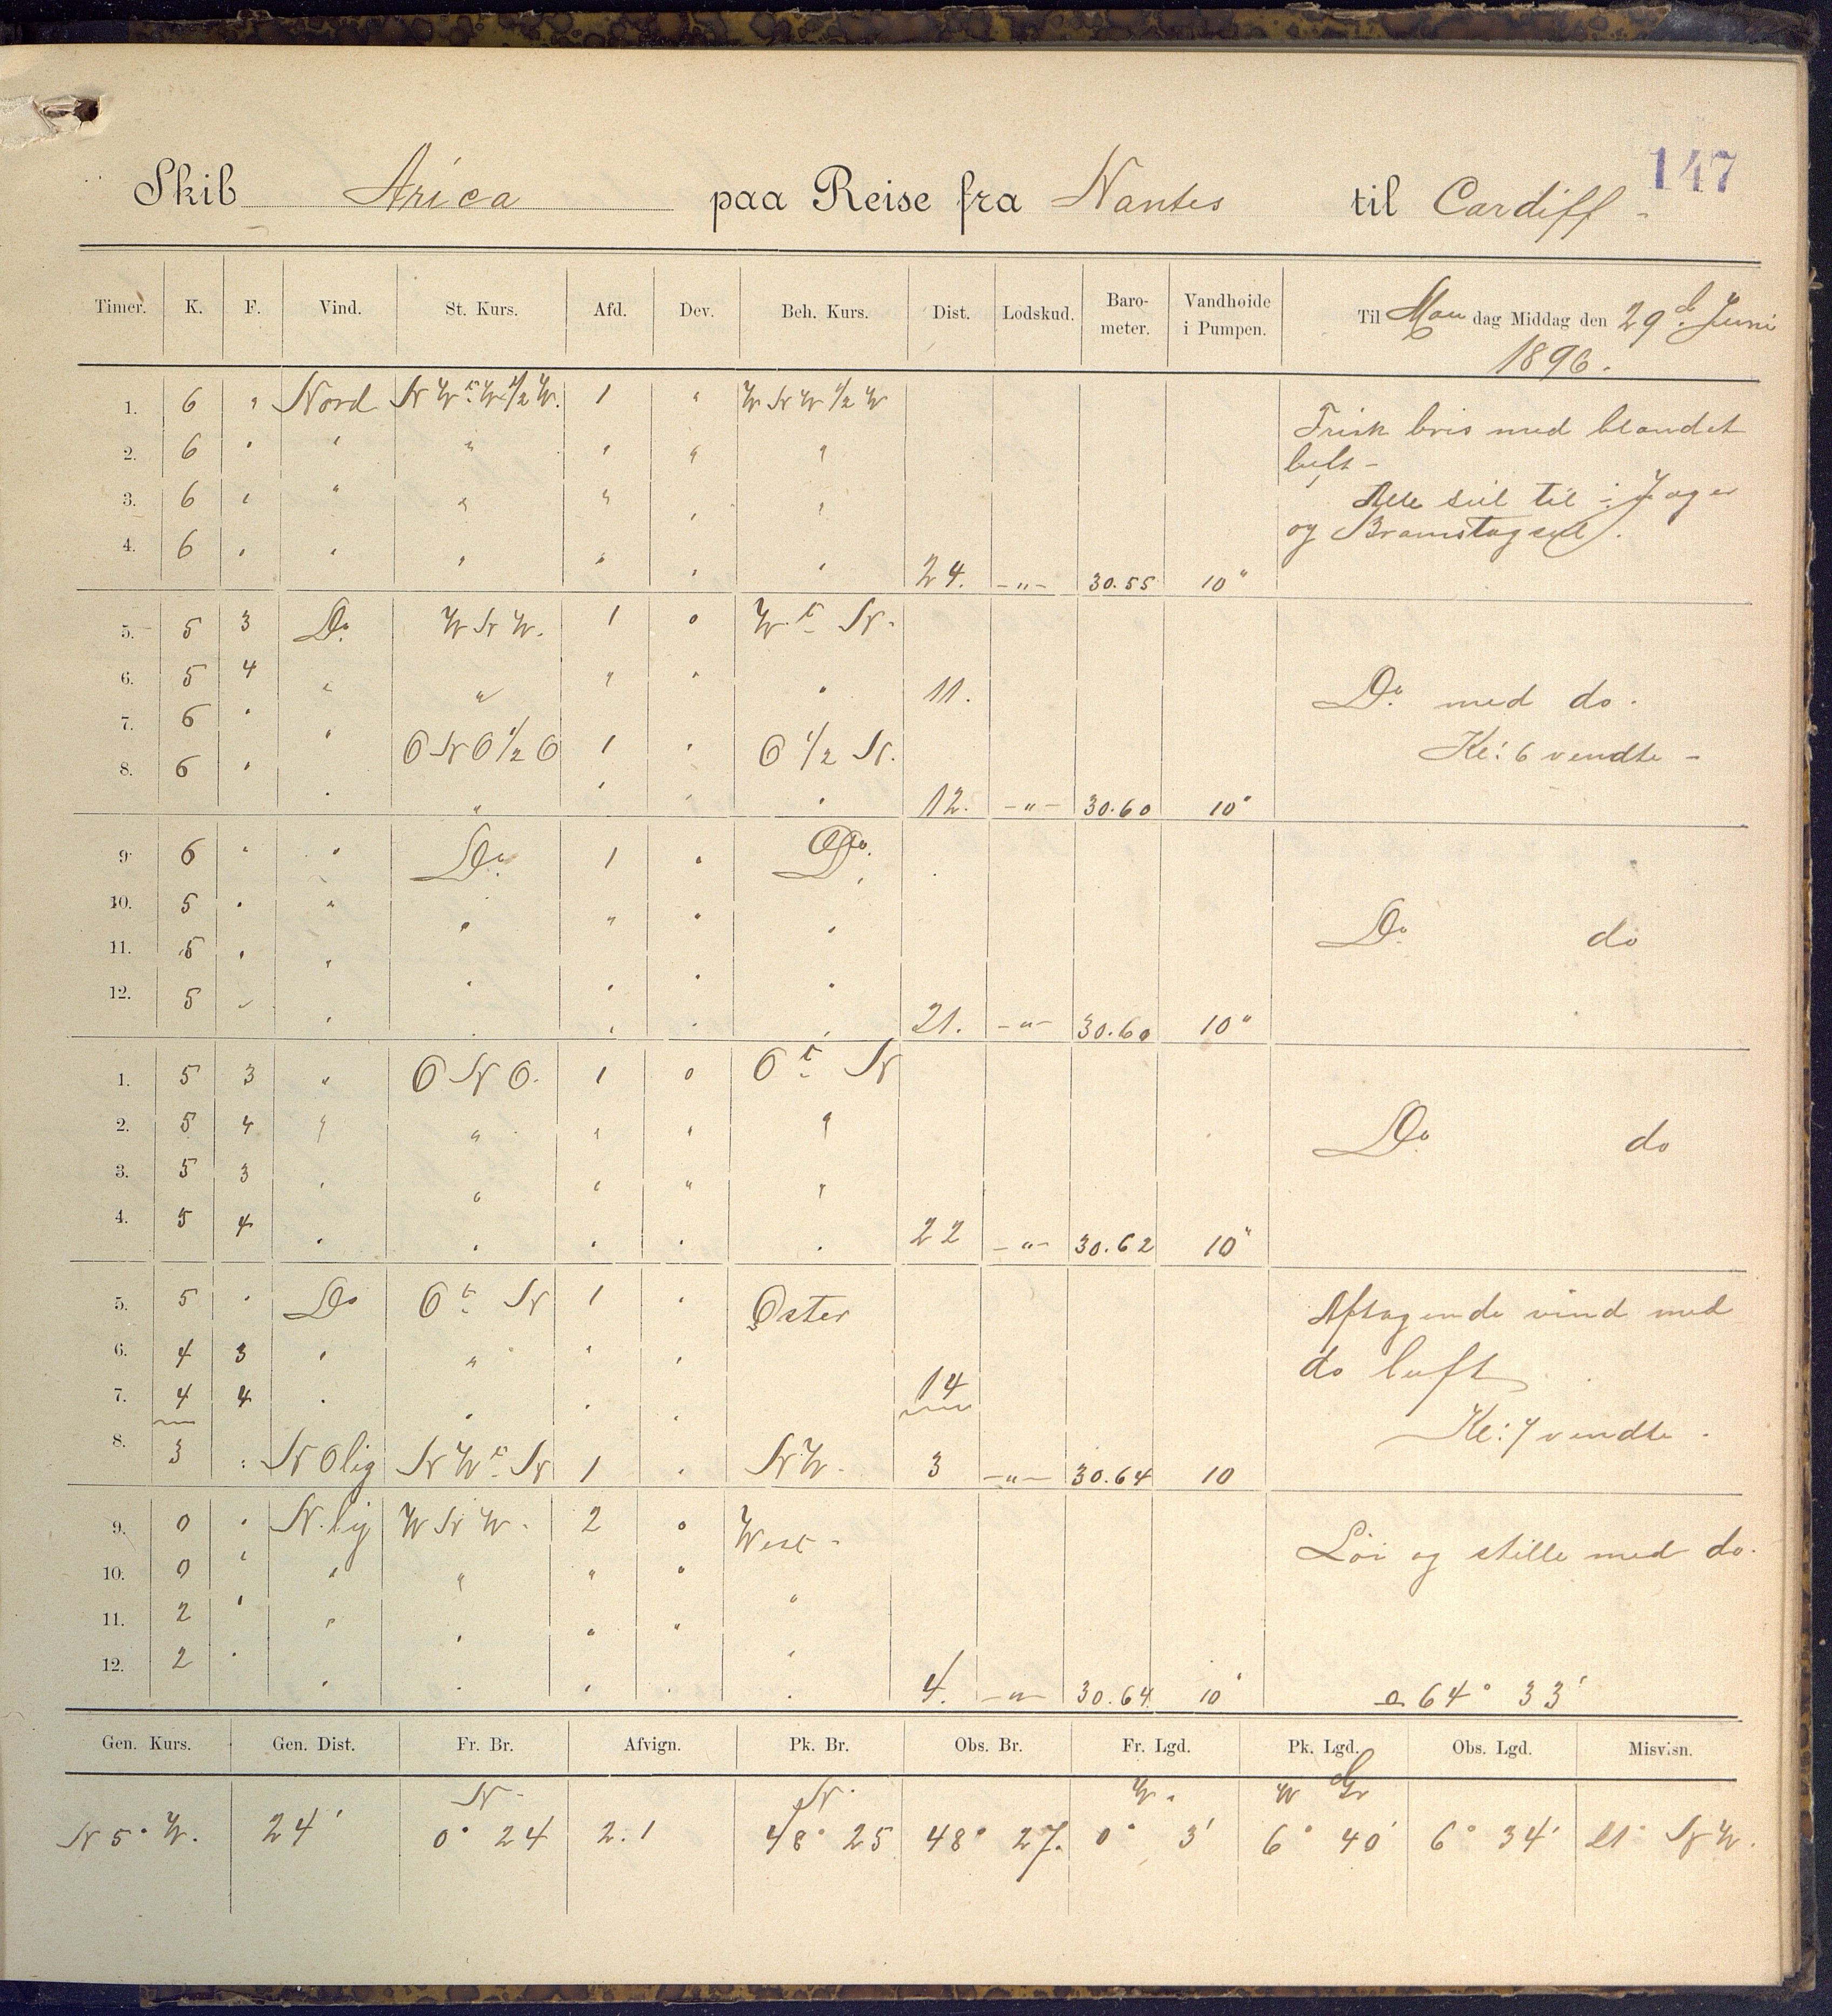 147
Skib Arica paa Reise fra Nantes til Cardiff -
Timer. K. F. Vind. St. Kurs. Afd. Dev. Beh. Kurs. Dist. Lodskud. Baro-meter. Vandhøide i Pumpen. Til Man dag Middag den 29d Juni
1896.
1. 6 " Nord NWtW 1/2 W. 1 " WNW 1/2 W
Frisk bris med blandet
2. 6 " " " " " "
luft -
3. 6 " " " " " "
Alle seil til : Jager
4. 6 " " " " " " 24. -"- 30.55 10"
og Bramstagseil.
5. 5 3 Do WNW. 1 0 W.t N.
6. 5 4 " " " " " 11.
Do med do.
7. 6 " " ONO 1/2 O 1 " O 1/2 N.
Kl: 6 vendte -
8. 6 " " " " " " 12. -"- 30.60 10"
9. 6 " " Do 1 " Do.
10. 5 " " " " " "
Do do
11. 5 " " " " " "
12. 5 " " " " " " 21. -"- 30.60 10"
1. 5 3 " ONO. 1 0 Ot N
2. 5 4 " " " " "
Do do
3. 5 3 " " " " "
4. 5 4 " " " " " 22 -"- 30.62 10"
5. 5 " Do Ot N 1 " Oster
Aftagende vind med
6. 4 3 " " " "
do luft
7. 4 4 " " " " 14
Kl: 7 vendte.
8. 3 " NOlig NWt N 1 " NW. 3 -"- 30.64 10
9. 0 " N.lig WNW. 2 0 West -
Löi og stille med do.
10. 0 " " " " " "
11. 2 " " " " " "
12. 2 " " " " " " 4. -"- 30.64 10"
64° 33'
Gen. Kurs. Gen. Dist. Fr. Br. Afvign. Pk. Br. Obs. Br. Fr. Lgd. Pk. Lgd. Obs. Lgd. Misvisn.
N. N. W. W Gr
N 5° W. 24' 0° 24 2.1 48° 25 48° 27. 0° 3' 6° 40' 6° 34' 21° NW.